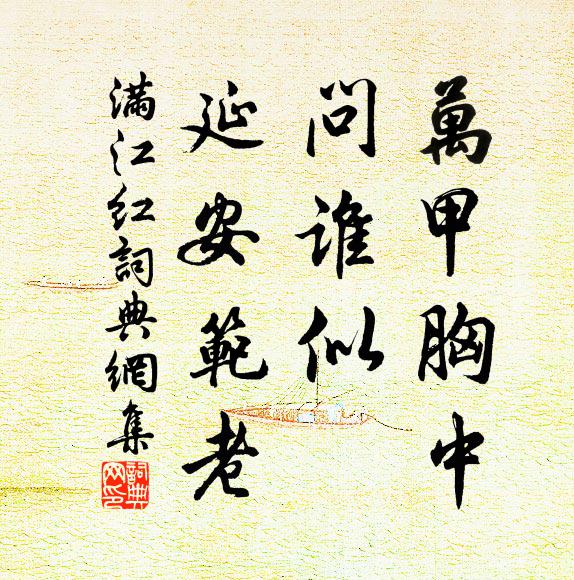 萬甲胸中
問誰似
延安範老
滿江紅詞典網集
詞典网印